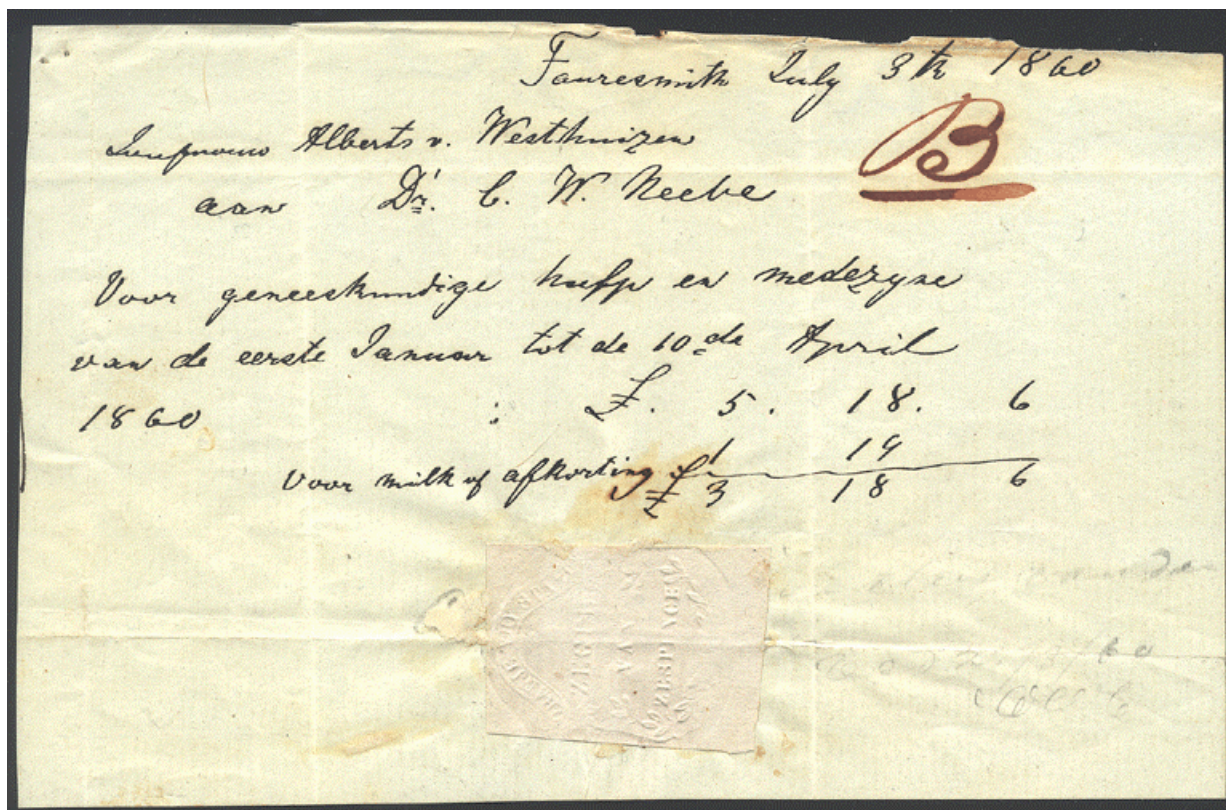 Fauresmith July 3th 1860
B
Juufvrouw Alberts v. Westhuizen
aan Dr. C. W. Neebe
Voor geneeskundige hulfp en medezyne
van de eerste Januar tot de 10de April
1860 : £. 5. 18. 6
1 19
Voor milk of afkorting £ 3 18 6
ZEGEL
VAN
ZESPENCE